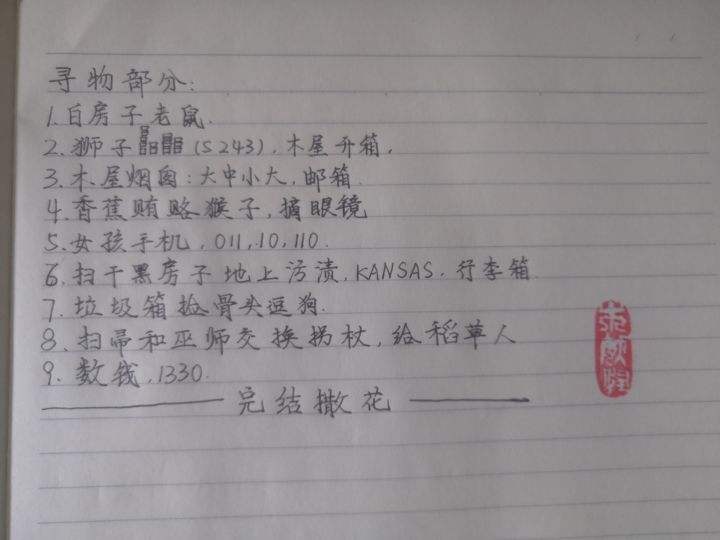 寻物部分:
1.白房子老鼠.
2.狮子(5243),木屋开箱.
3.木屋烟囱:大中小大,邮箱.
4.香蕉贿赂猴子,摘眼镜
5.女孩手机,011,10,110.
6.扫干黑房子地上污渍,KANSAS.行李箱.
7.垃圾箱捡骨头逗狗.
8、扫帚和巫师交换拐杖,给稻草人
9.数钱,1330.
完结撒花